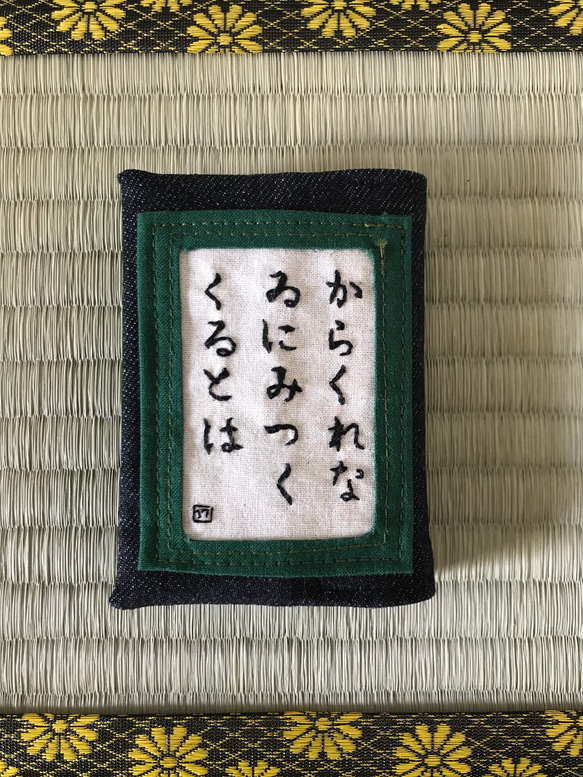 からくれな
ゐにみつく
くるとは
17